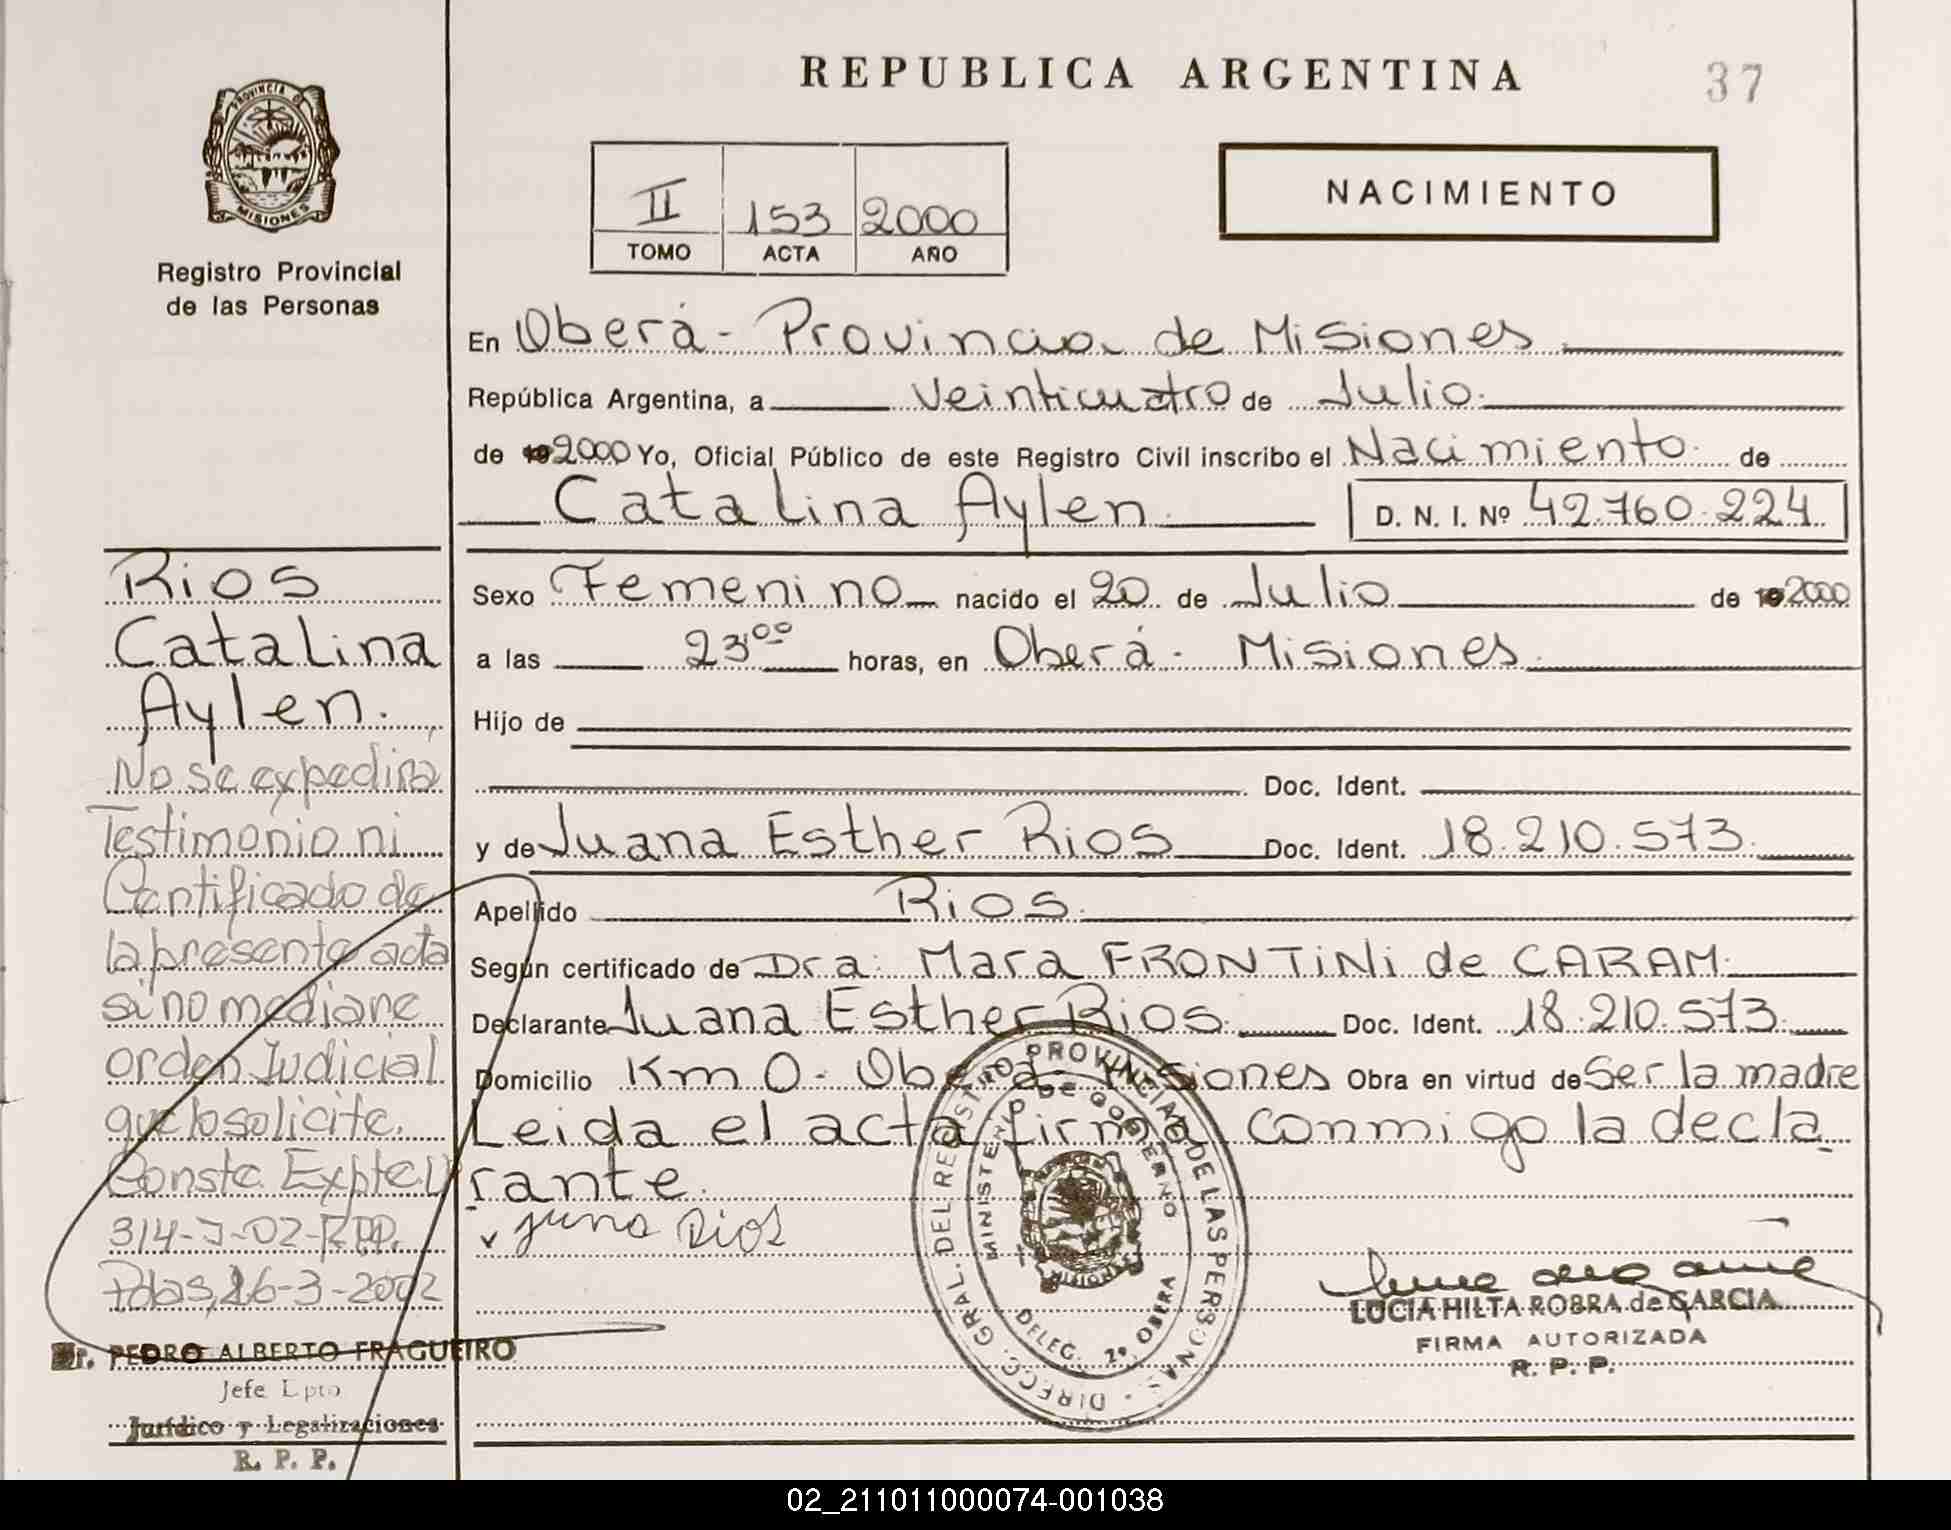 REPUBLICA ARGENTINA
37
PROVINCIA DE
MISIONES
Registro Provincial
de las Personas
II 153 2000
TOMO ACTA AÑO
NACIMIENTO
En Oberá - Provincia de Misiones
República Argentina, a veinticuatro de Julio.
de 19 2000 Yo, Oficial Público de este Registro Civil inscribo el Nacimiento. de
Catalina Aylen.
D. N. I. Nº 42.760.224
Sexo Femenino nacido el 20 de Julio de 19 2000
a las 23⁰⁰ horas, en Oberá - Misiones.
Hijo de
Doc. Ident.
y de Juana Esther Rios Doc. Ident. 18.210.573.
Apellido Rios.
Según certificado de Dra: Mara FRONTiNi de CARAM.
Declarante Juana Esther Rios. Doc. Ident. 18.210.573.
Domicilio Km 0 - Oberá - Misiones Obra en virtud de Ser la madre
Leida el acta firma conmigo la decla
rante.
Juna Rios
LUCIA HILTA ROBRA de GARCIA
FIRMA AUTORIZADA
R. P. P.
DIRECC. GRAL. DEL REGISTRO PROVINCIAL DE LAS PERSONAS -
MINISTERIO DE GOBIERNO
MISIONES
DELEG. 2ª. OBERA
Rios
Catalina
Aylen.
No se expedira
Testimonio ni
Certificado de
la presente acta
si no mediare
orden Judicial
que lo solicite.
Conste. Expte.
314-J-02-RPP.
Pdas, 26-3-2002
Dr. PEDRO ALBERTO FRAGUEIRO
Jefe Dpto
Jurídico y Legalizaciones
R. P. P.
02_211011000074-001038